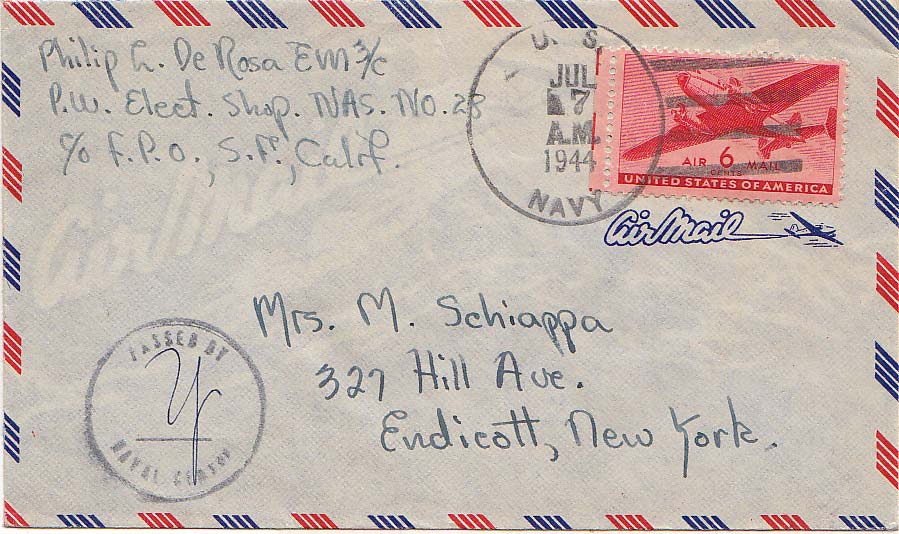 Philip L. De Rosa EM 3/c
P.W. Elect. Shop. NAS. NO. 28
c/o F.P.O., S.F., Calif.
U. S.
JUL
7
A.M.
1944
NAVY
AIR 6 MAIL
CENTS
UNITED STATES OF AMERICA
Air Mail
Mrs. M. Schiappa
327 Hill Ave.
Endicott, New York.
PASSED BY
NAVAL CENSOR